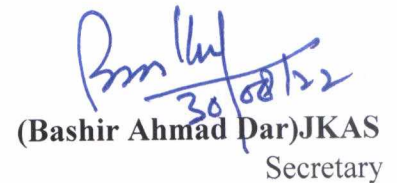 30/08/22
(Bashir Ahmad Dar)JKAS
Secretary